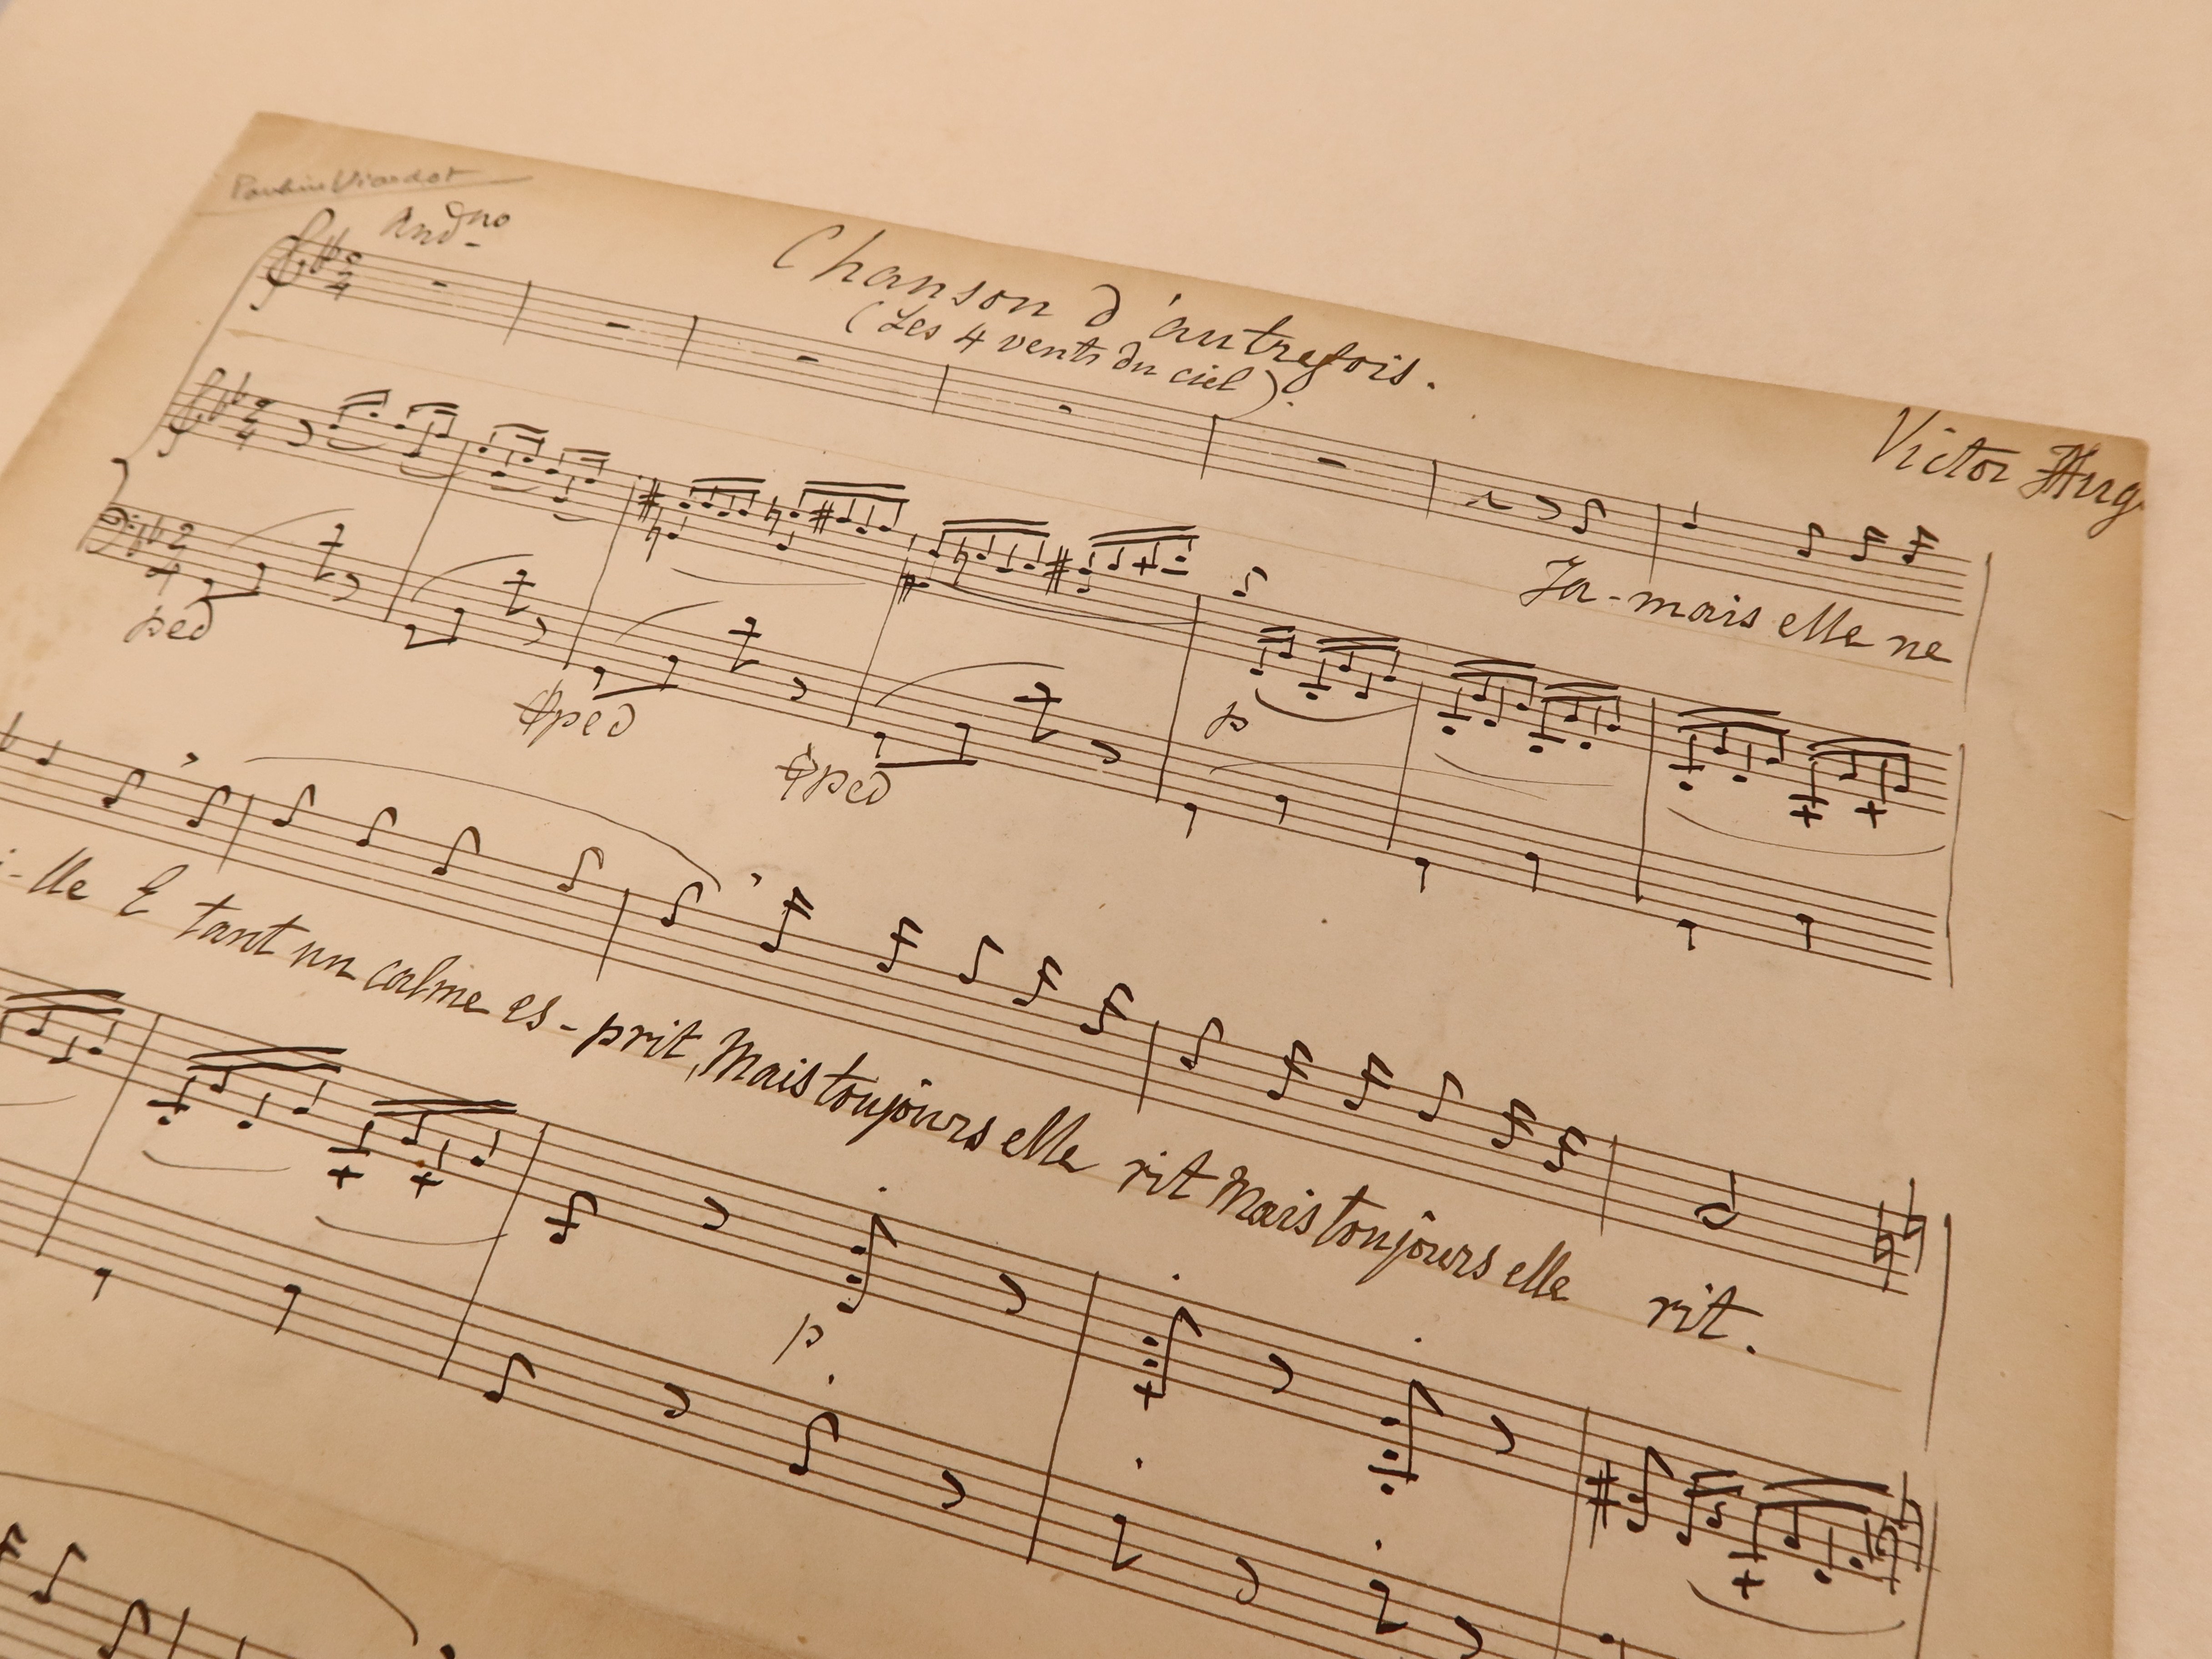 Pauline Viardot
And.no
Chanson d'autrefois.
(Les 4 vents du ciel).
Victor Hug
2
4
2
4
2
4
Ja-mais elle ne
ped
ped
ped
p
i-lle E tant un calme es-prit, Mais toujours elle rit Mais toujours elle rit.
p